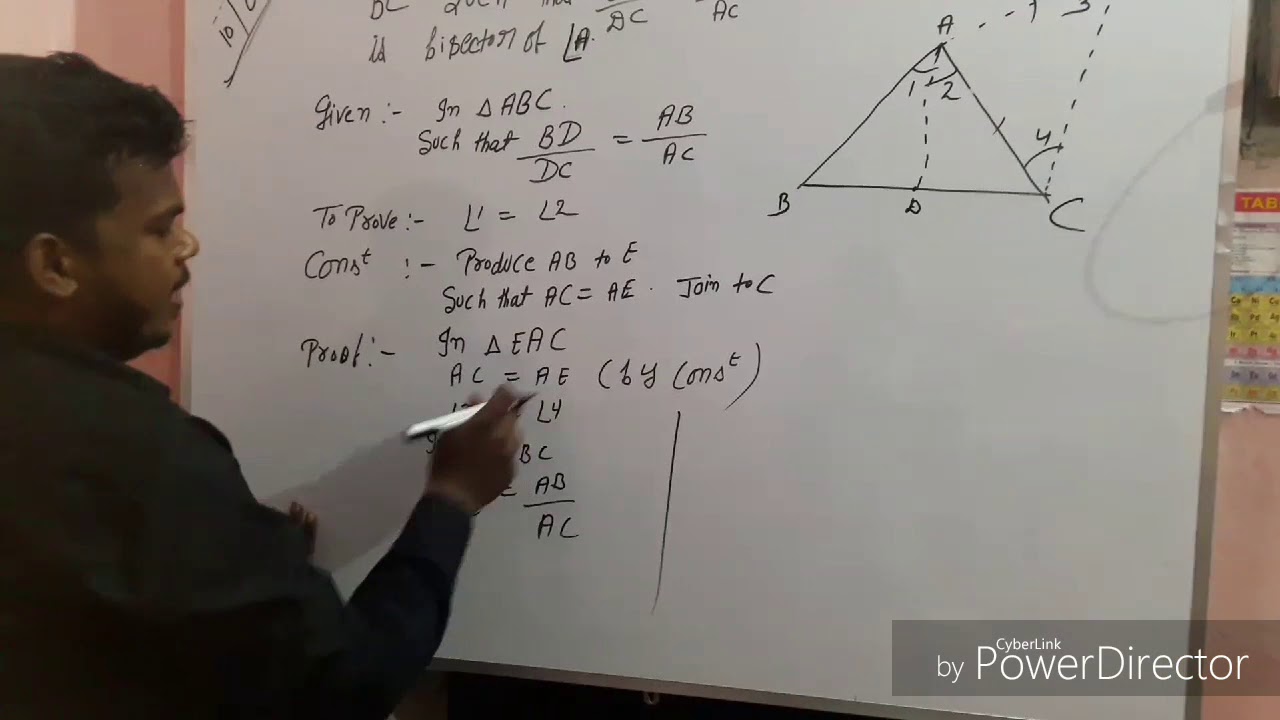 is bisector of ∠A.
DC
AC
Given :- In △ ABC.
Such that BD/DC = AB/AC
To Prove :- ∠1 = ∠2
Const :- Produce AB to E
Such that AC = AE. Join to C
Proof :- In △ EAC
AC = AE (by Const)
∠4
BC
= AB/AC
A
1 2
3
4
B D C
10
TAB
CyberLink
by PowerDirector